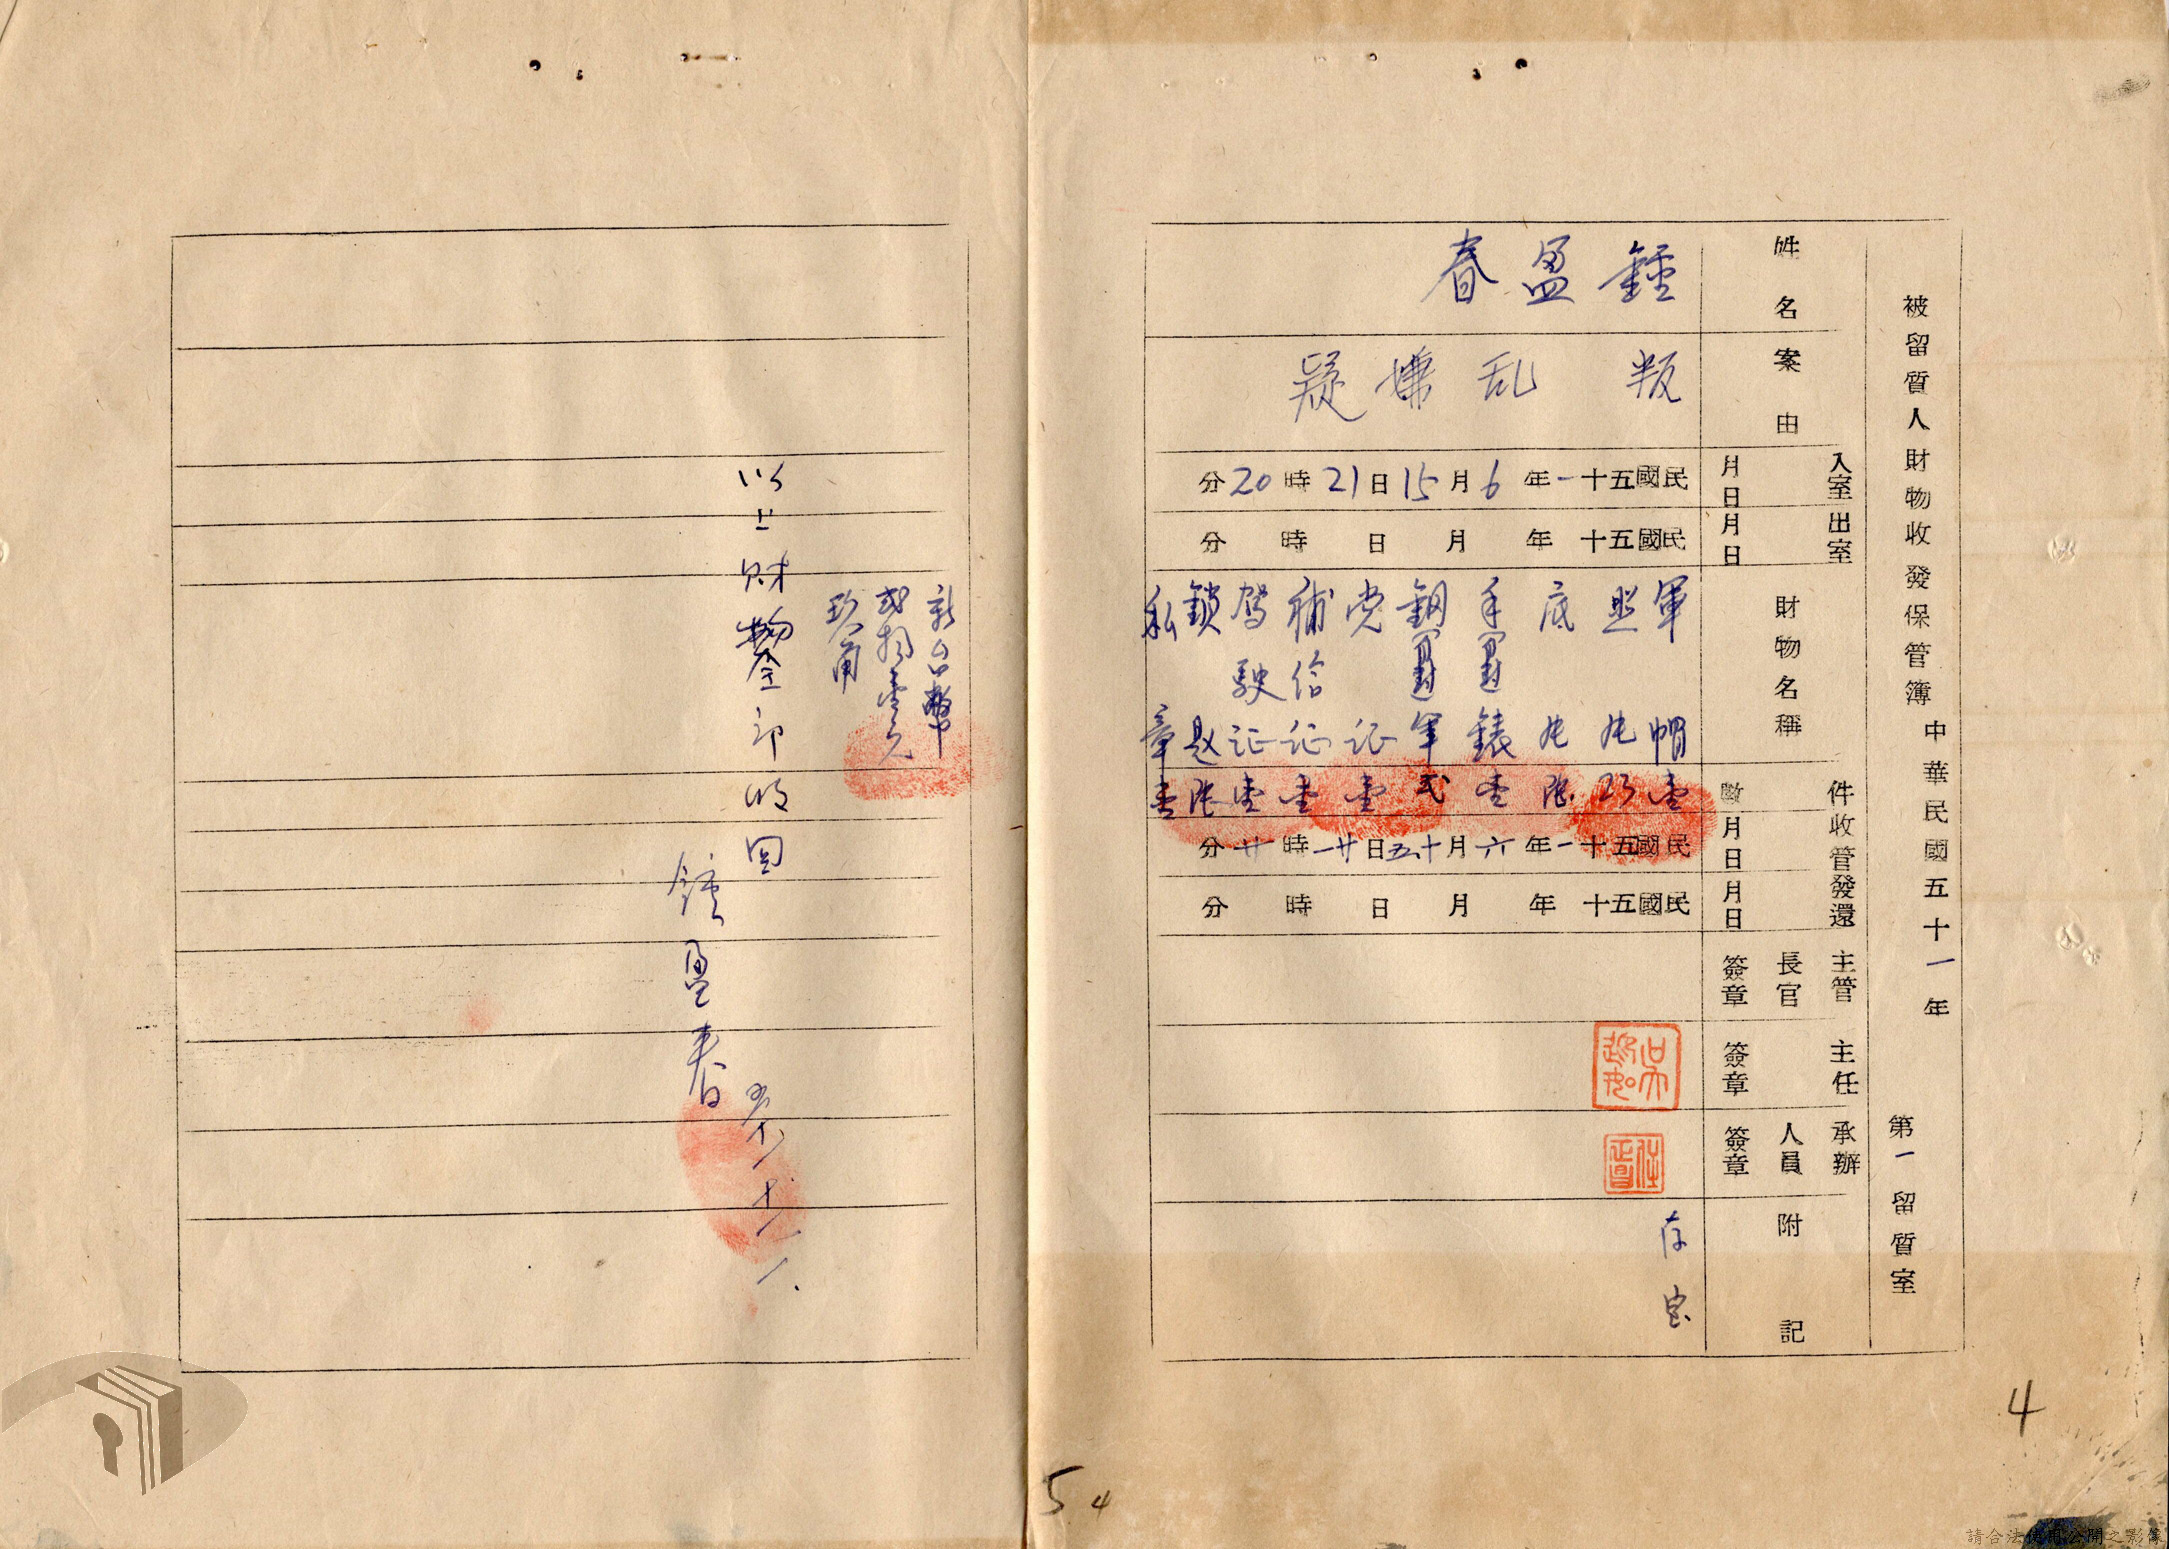 被留質人財物收發保管簿
中華民國五十一年
第一留質室
姓名
鍾盈春
案由
叛乱嫌疑
入室月日
民國五十一年6月15日21時20分
出室月日
民國五十年月日時分
財物名稱
軍帽
照片
底片
手錶
鋼筆
党証
補給証
駕駛証
鎖匙
私章
件數
壹
張
壹
弍
壹
壹
壹
張
壹
收管月日
民國五十一年六月十五日廿一時廿分
發還月日
民國五十年月日時分
主管長官簽章
主任簽章
承辦人員簽章
附記
存室
新台幣
玖角
以上財物全部收回
鍾盈春
4
5
4
請合法使用公開之影像